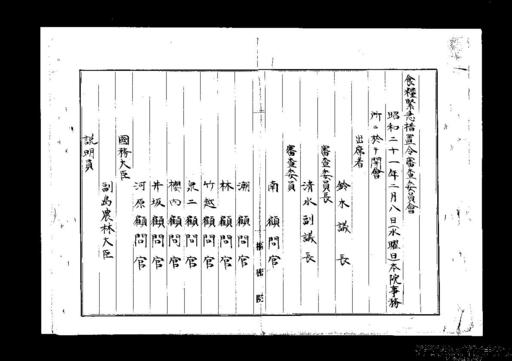 食糧緊急措置令審査委員會
昭和二十一年二月八日(水曜日)本院事務
所ニ於テ開會
出席者
鈴木議長
審査委員長
清水副議長
審査委員
南顧問官
潮顧問官
林顧問官
竹越顧問官
泉二顧問官
櫻内顧問官
井坂顧問官
河原顧問官
國務大臣
副島農林大臣
説明員
樞密院